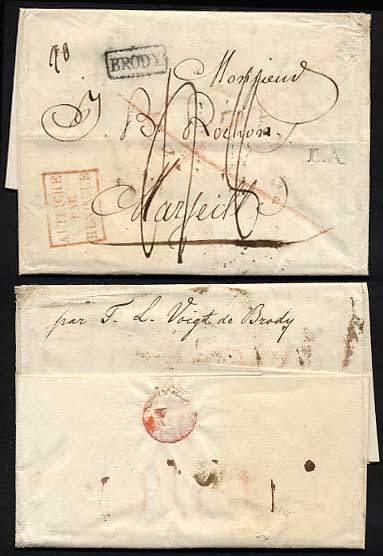 BRODY
Monsieur
J. B. Rochon
L.A.
Marseille
AUTRICHE
PAR
HUNINGUE
par F. L. Voigt de Brody